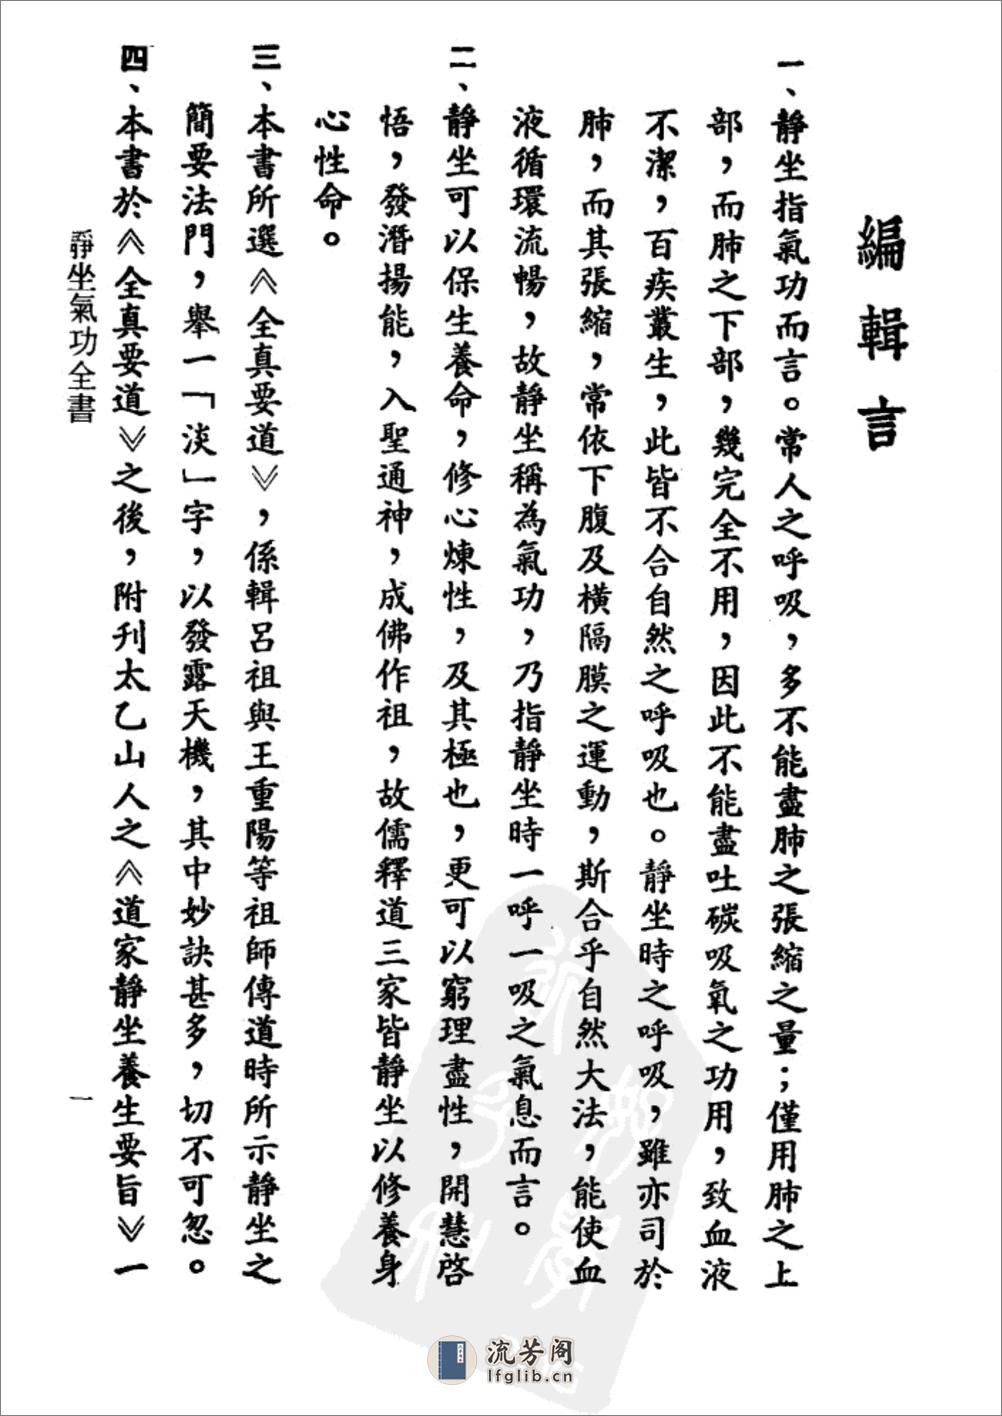 編輯言
一、靜坐指氣功而言。常人之呼吸，多不能盡肺之張縮之量；僅用肺之上
部，而肺之下部，幾完全不用，因此不能盡吐碳吸氧之功用，致血液
不潔，百疾叢生，此皆不合自然之呼吸也。靜坐時之呼吸，雖亦司於
肺，而其張縮，常依下腹及橫隔膜之運動，斯合乎自然大法，能使血
液循環流暢，故靜坐稱為氣功，乃指靜坐時一呼一吸之氣息而言。
二、靜坐可以保生養命，修心煉性，及其極也，更可以窮理盡性，開慧啓
悟，發潛揚能，入聖通神，成佛作祖，故儒釋道三家皆靜坐以修養身
心性命。
三、本書所選《全真要道》，係輯呂祖與王重陽等祖師傳道時所示靜坐之
簡要法門，舉一「淡」字，以發露天機，其中妙訣甚多，切不可忽。
四、本書於《全真要道》之後，附刊太乙山人之《道家靜坐養生要旨》一
靜坐氣功全書
一
流芳阁
lfglib.cn